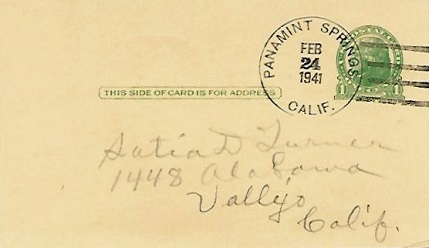 PANAMINT SPRINGS
FEB
24
1941
CALIF.
THIS SIDE OF CARD IS FOR ADDRESS
Turner
1448 Alabama
Vallejo
Calif.